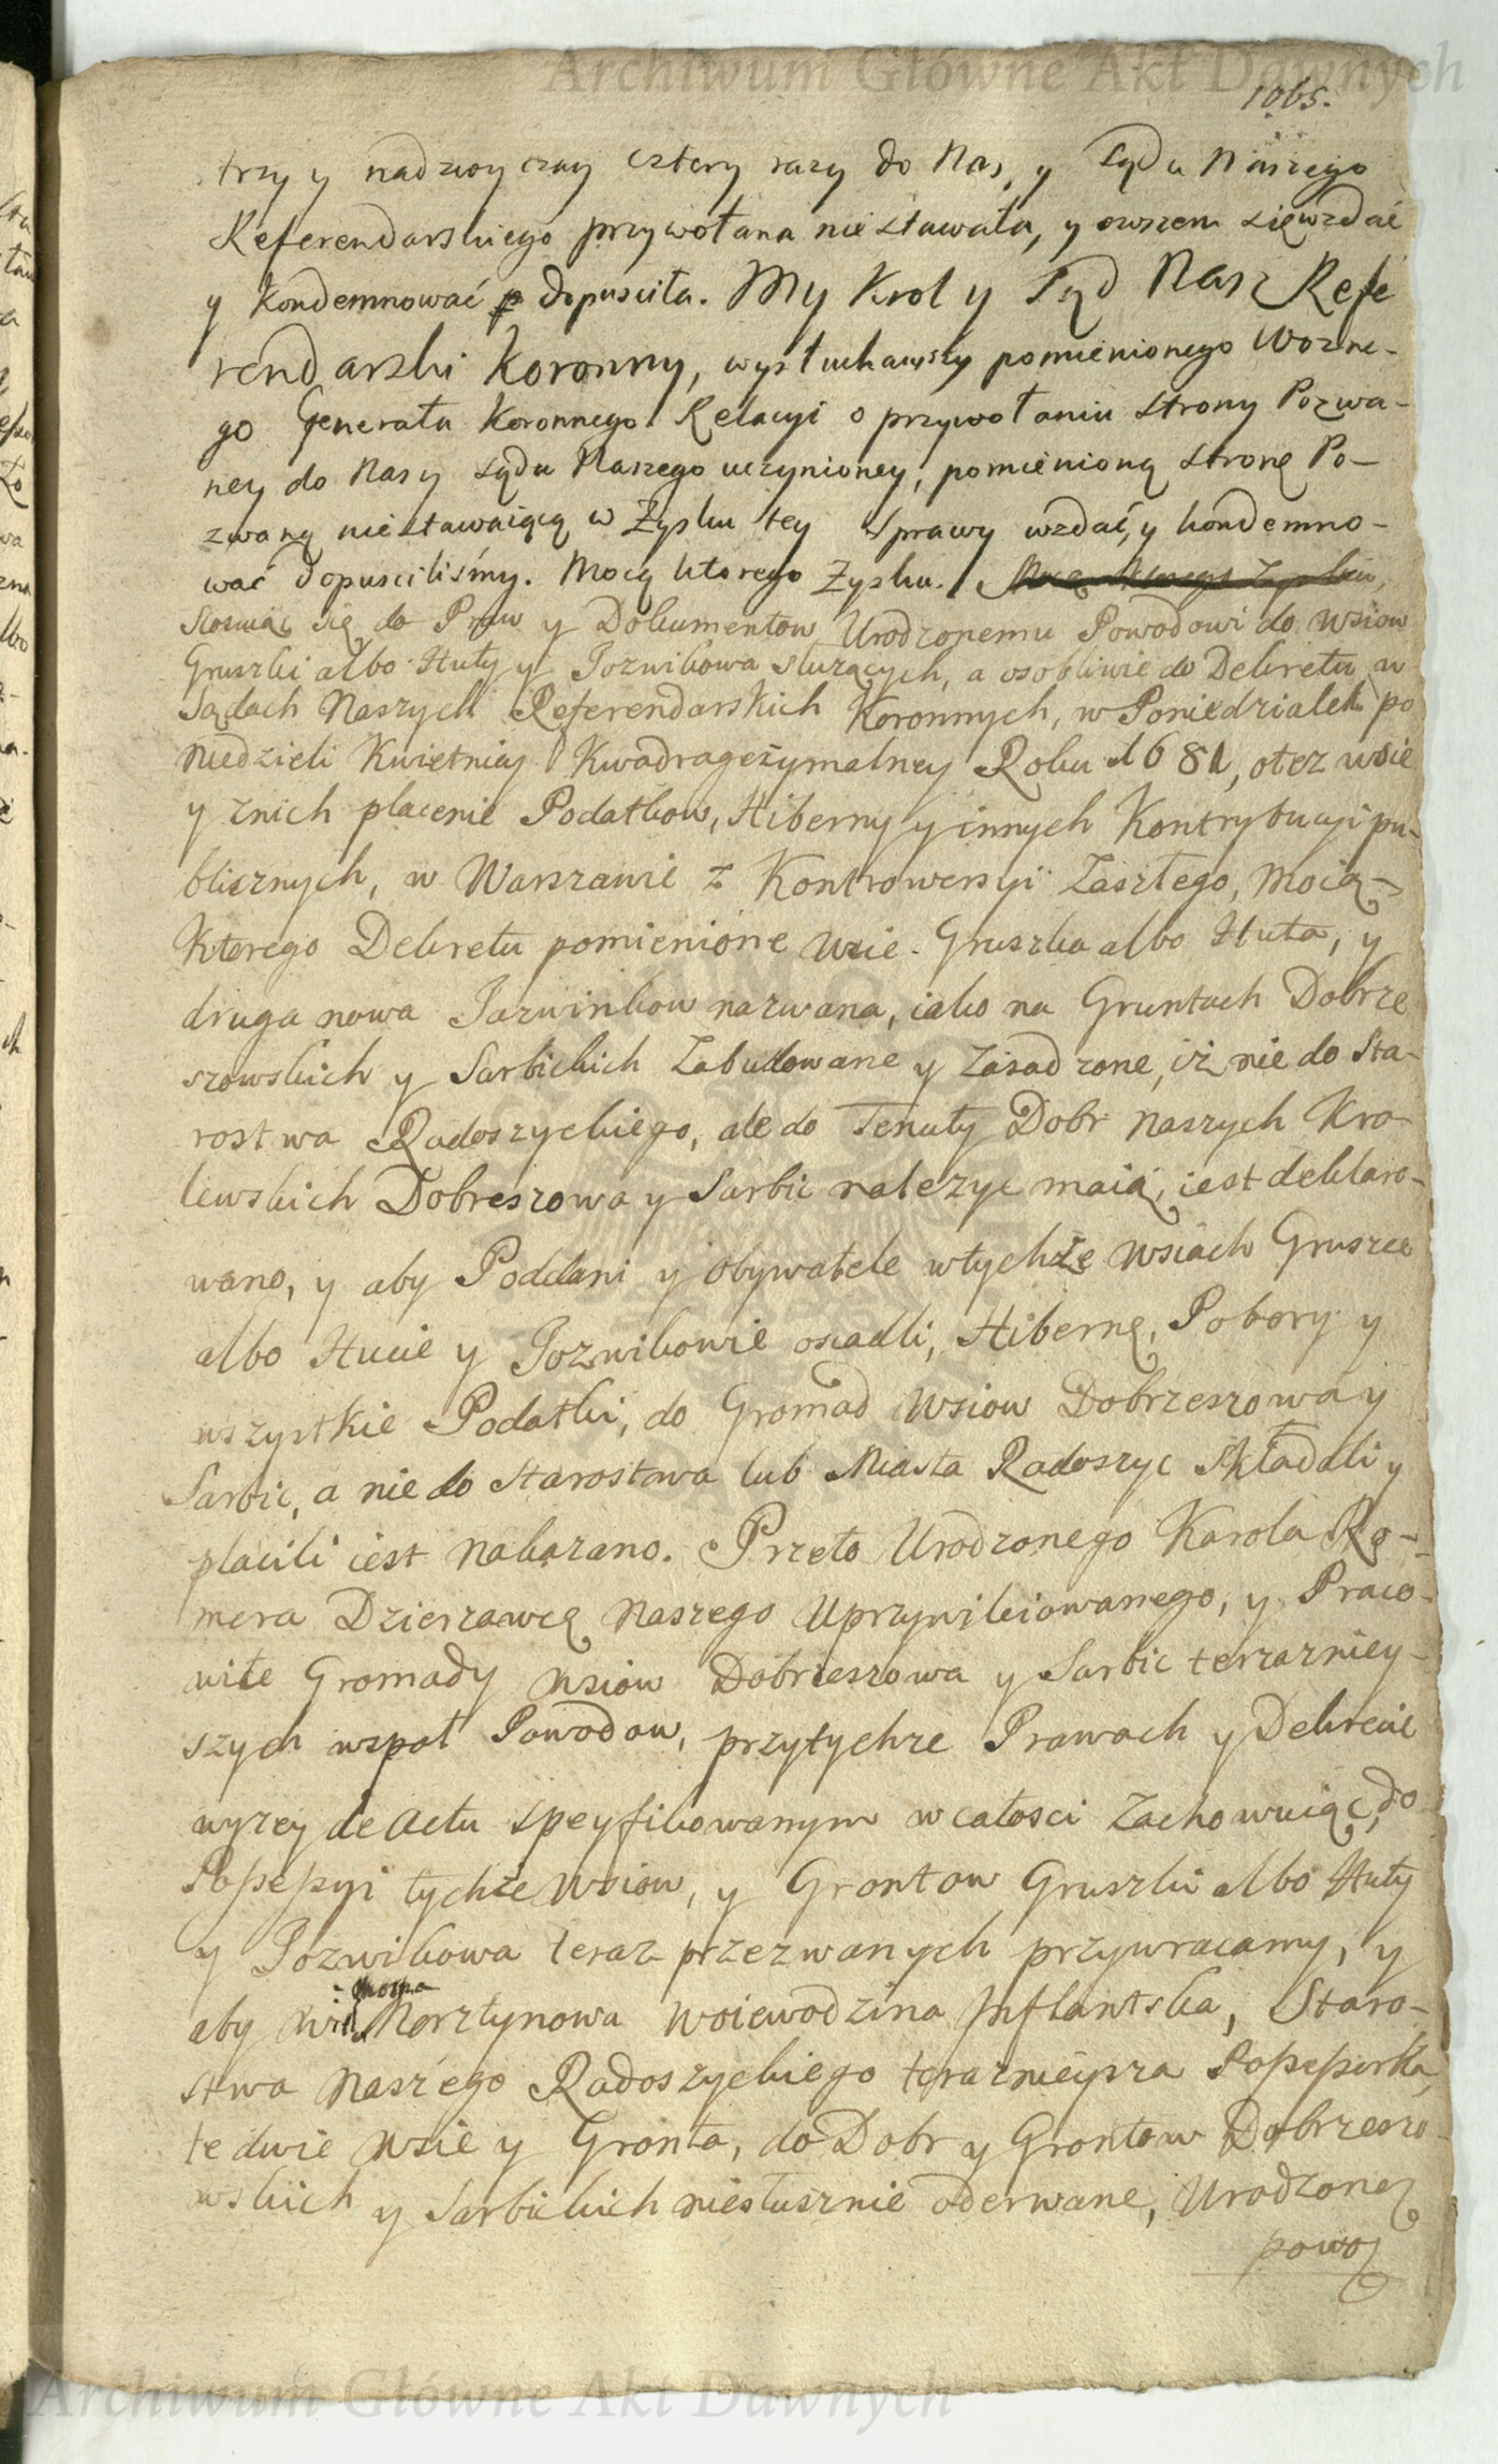 Archiwum Główne Akt Dawnych
1065.
trzy y nadzwyczay cztery razy do Nas, y Sądu Naszego
Referendarskiego przywołana nie stawała, y owszem się wzdać
y Kondemnować dopusciła. My Krol y Sąd Nasz Refe
rendarski Koronny, wysłuchawszy pomienionego Wozne-
go Generała Koronnego Relacyi o przywołaniu strony Pozwa-
ney do Nas y Sądu Naszego uczynioney, pomienioną stronę Po-
zwaną nie stawaiącą w Zysku tey Sprawy wzdać, y kondemno-
wać dopuściliśmy. Mocą ktorego Zysku. Mocą ktorego Zysku,
stosuiąc się do Praw y Dokumentow Urodzonemu Powodowi do wsiow
Gruszki albo Huty y Jozwikowa służących, a osobliwie do Dekretu w
Sądach Naszych Referendarskich Koronnych, w Poniedziałek po
Niedzieli Kwietniey Kwadragezymalney Roku 1681, o też wsie
y z nich płacenie Podatkow, Hiberny y innych Kontrybucyi pu-
blicznych, w Warszawie z Kontrowersyi Zaszłego, Mocą
Ktorego Dekretu pomienione Wsie Gruszka albo Huta, y
druga nowa Jazwinkow nazwana, iako na Gruntach Dobrze
szowskich y Sarbickich Zabudowane y Zasadzone, iż nie do Sta-
rostwa Radoszyckiego, ale do Tenuty Dobr Naszych Kro-
lewskich Dobreszowa y Sarbic nalezyc maią, iest deklaro-
wano, y aby Poddani y Obywatele w tychże Wsiach Gruszce
albo Hucie y Jozwikowie osiadli, Hibernę, Pobory y
wszystkie Podatki, do Gromad Wsiow Dobrzeszowa y
Sarbic, a nie do Starostwa lub Miasta Radoszyc składali y
płacili iest nakazano. Przeto Urodzonego Karola Ro-
mera Dzierzawcę Naszego Uprzywileiowanego, y Praco-
wite Gromady Wsiow Dobrzeszowa y Sarbic terazniey-
szych wspoł Powodow, przy tychze Prawach y Dekrecie
wyzey de Actu specyfikowanym w całosci Zachowuiąc, do
Possessyi tychże Wsiow, y Grontow Gruszki albo Huty
y Jozwikowa teraz przezwanych przywracamy, y
aby Morztynowa Woiewodzina Inflantska, Staro-
stwa Naszego Radoszyckiego teraznieysza Possessorka,
te dwie Wsie y Gronta, do Dobr y Grontow Dobrzeszo-
wskich y Sarbickich niesłusznie oderwane, Urodzone
powo
Archiwum Główne Akt Dawnych